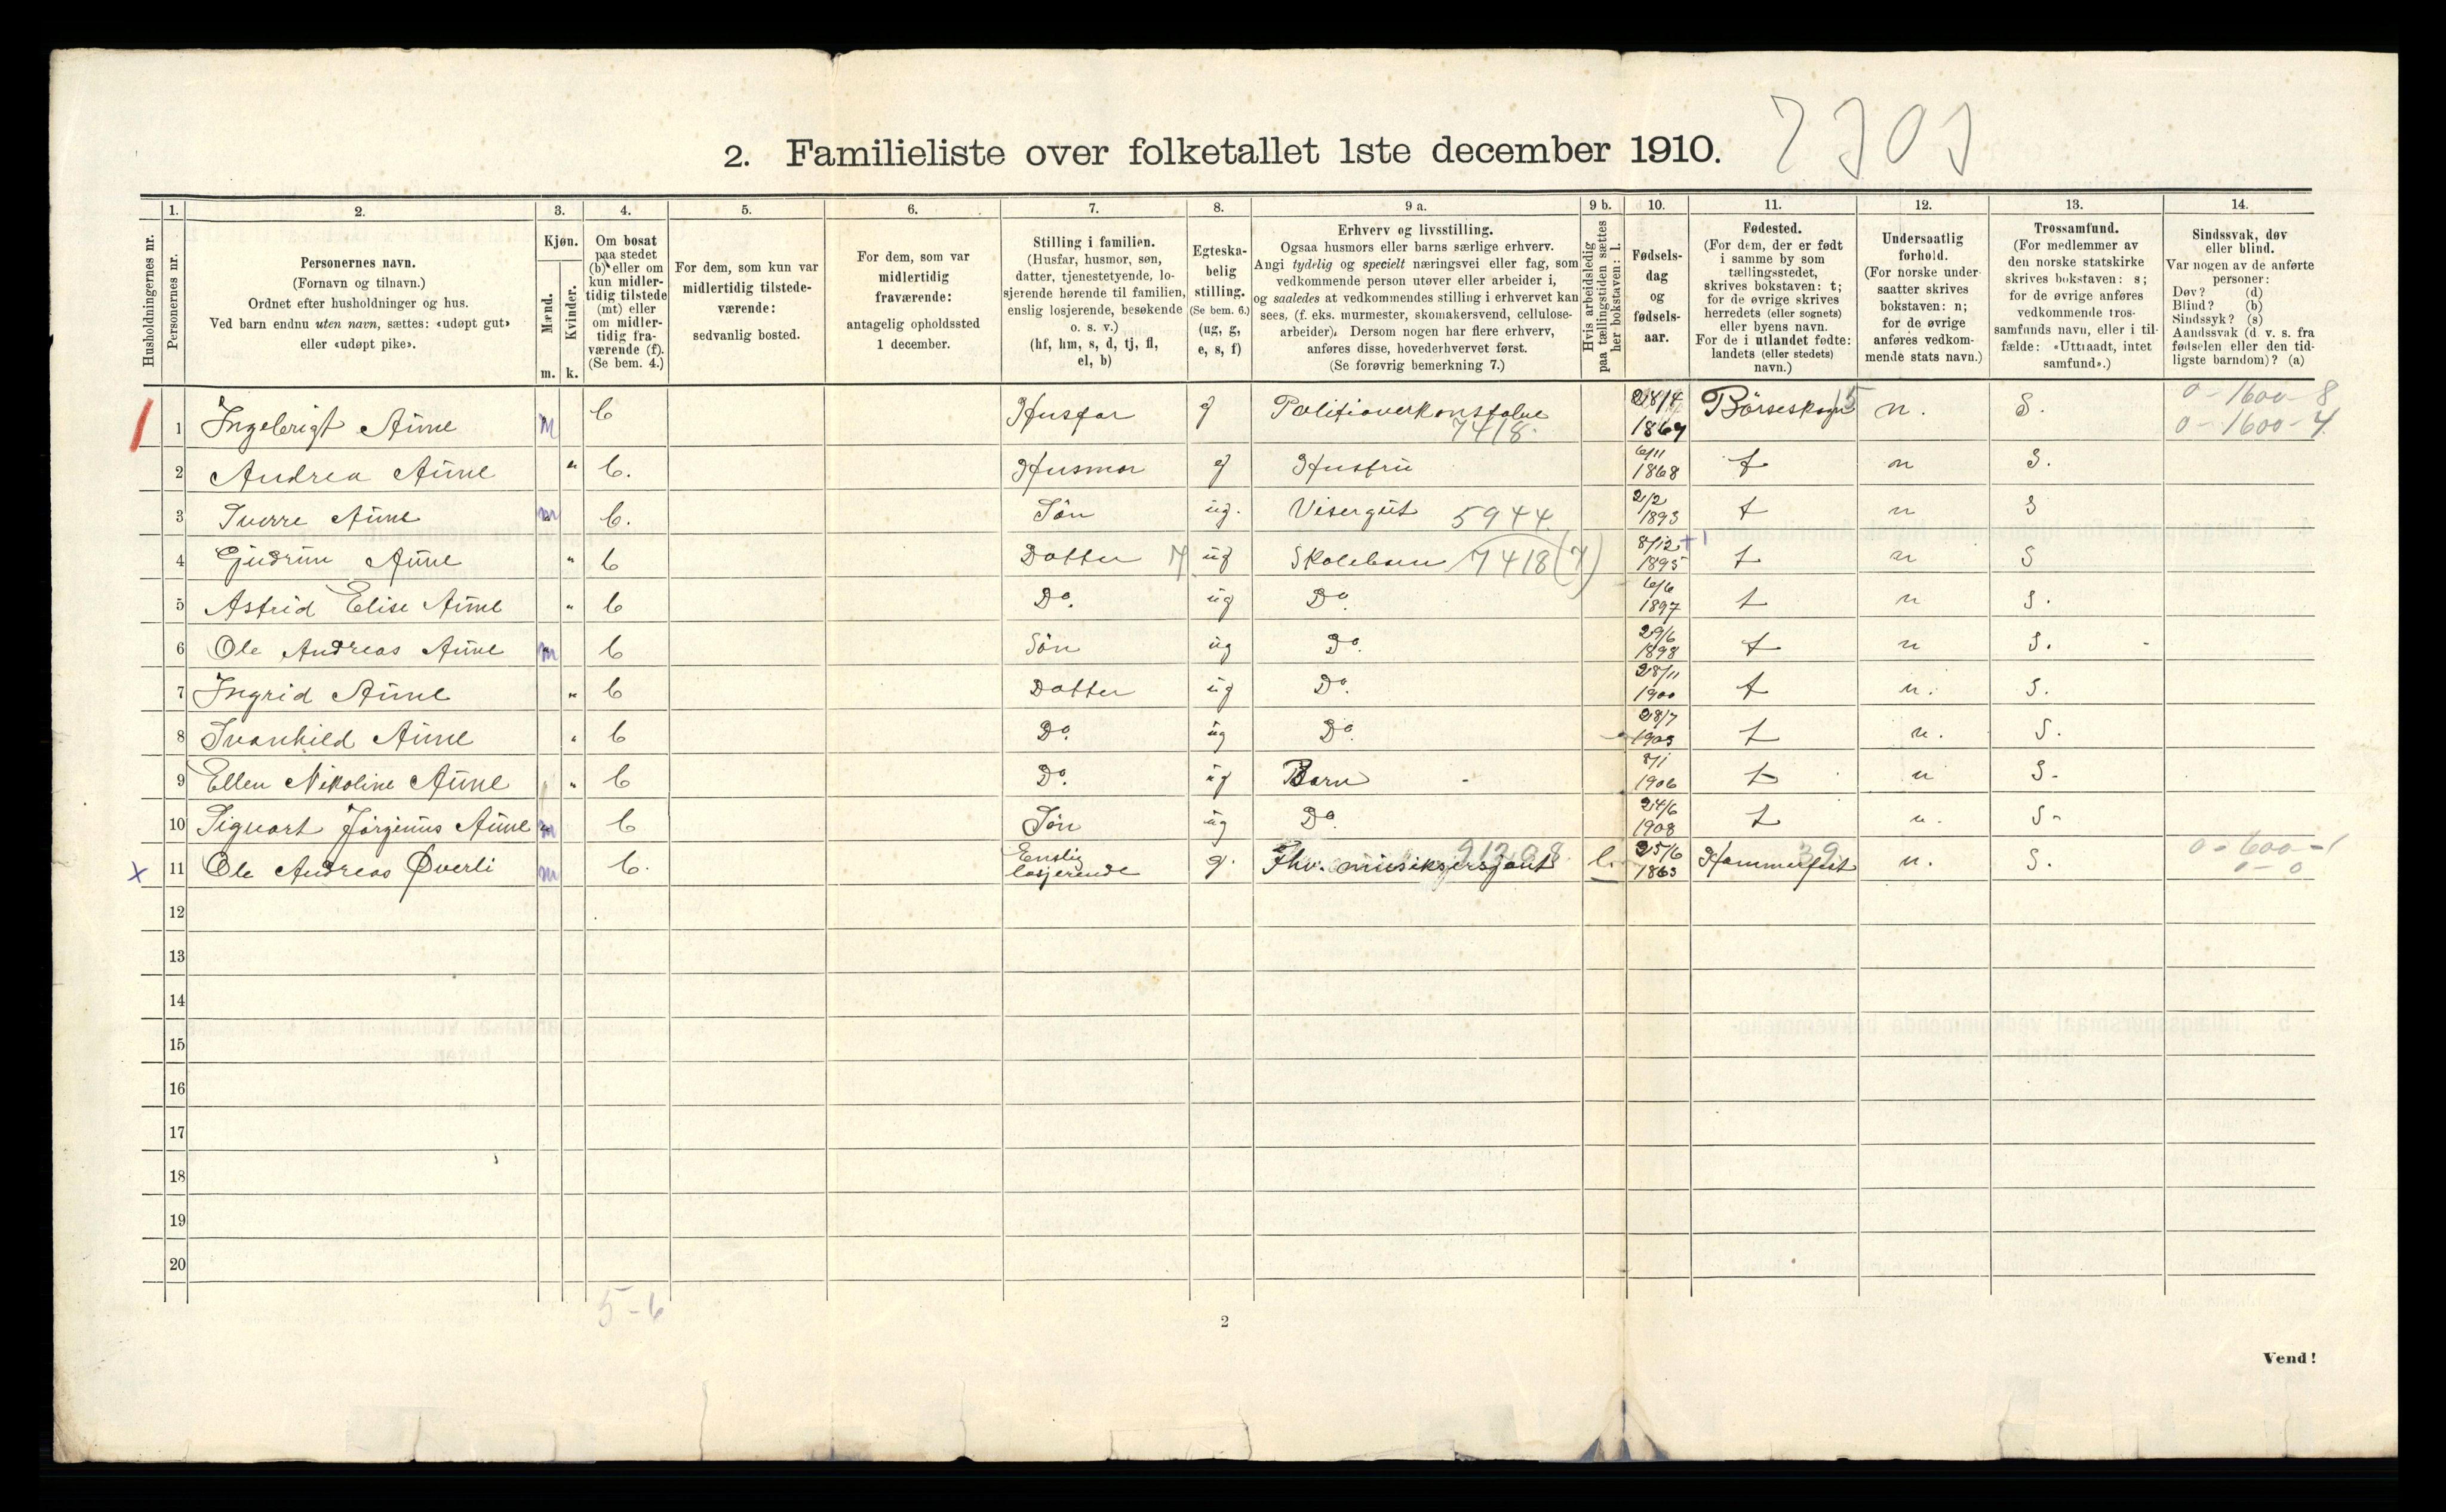 2. Familieliste over folketallet 1ste december 1910.
Husholdningernes nr.
1.
Personernes nr.
2.
Personernes navn.
(Fornavn og tilnavn.)
Ordnet efter husholdninger og hus.
Ved barn endnu uten navn, sættes: «udøpt gut»
eller «udøpt pike».
3.
Kjøn.
Mænd.
Kvinder.
m. k.
4.
Om bosat
paa stedet
(b) eller om
kun midler-
tidig tilstede
(mt) eller
om midler-
tidig fra-
værende (f).
(Se bem. 4.)
5.
For dem, som kun var
midlertidig tilstede-
værende:
sedvanlig bosted.
6.
For dem, som var
midlertidig
fraværende:
antagelig opholdssted
1 december.
7.
Stilling i familien.
(Husfar, husmor, søn,
datter, tjenestetyende, lo-
sjerende hørende til familien,
enslig losjerende, besøkende
o. s. v.)
(hf, hm, s, d, tj, fl,
el, b)
8.
Egteska-
belig
stilling.
(Se bem. 6.)
(ug, g,
e, s, f)
9 a.
Erhverv og livsstilling.
Ogsaa husmors eller barns særlige erhverv.
Angi tydelig og specielt næringsvei eller fag, som
vedkommende person utøver eller arbeider i,
og saaledes at vedkommendes stilling i erhvervet kan
sees, (f. eks. murmester, skomakersvend, cellulose-
arbeider). Dersom nogen har flere erhverv,
anføres disse, hovederhvervet først.
(Se forøvrig bemerkning 7.)
9 b.
Hvis arbeidsledig
paa tællingstiden sættes
her bokstaven: l.
10.
Fødsels-
dag
og
fødsels-
aar.
11.
Fødested.
(For dem, der er født
i samme by som
tællingsstedet,
skrives bokstaven: t;
for de øvrige skrives
herredets (eller sognets)
eller byens navn.
For de i utlandet fødte:
landets (eller stedets)
navn.)
12.
Undersaatlig
forhold.
(For norske under-
saatter skrives
bokstaven: n;
for de øvrige
anføres vedkom-
mende stats navn.)
13.
Trossamfund.
(For medlemmer av
den norske statskirke
skrives bokstaven: s;
for de øvrige anføres
vedkommende tros-
samfunds navn, eller i til-
fælde: «Uttraadt, intet
samfund».)
14.
Sindssvak, døv
eller blind.
Var nogen av de anførte
personer:
Døv? (d)
Blind? (b)
Sindssyk? (s)
Aandssvak (d. v. s. fra
fødselen eller den tid-
ligste barndom)? (a)
1 Ingebrigt Aune m b Husfar g Politioverkonstabel 7418 28/4 Børseskogn 15 n. S. 0-1600-8
0-1600-4
2 Andrea Aune " b. Husmor g Husfru 6/11 1868 t n S.
3 Sverre Aune m b. Søn ug. Visergut 5944 2/2 1893 t n S
4 Gudrun Aune " b Datter ug Skolebarn 7418(7) 8/12 1895 t n S
5 Astrid Elise Aune " b Do. ug Do. 6/6 1897 t n S.
6 Ole Andreas Aune m b Søn ug Do. 29/6 1898 t n S.
7 Ingrid Aune " b Datter ug Do. 28/11 1900 t n. S.
8 Svanhild Aune " b Do. ug Do. 28/7 1903 t n. S.
9 Ellen Nikoline Aune " b Do. ug Barn 8/1 1906 t n S.
10 Siguart Jørginus Aune m b Søn ug Do. 24/6 1908 t n. S.
x 11 Ole Andreas Øverli m b. Enslig
losjerende g. Fhv. musiksersjant l. 25/6 1863 Hammerfest n. S. 0-600-1
0-0
12
13
14
15
16
17
18
19
20
5-6
2
Vend!